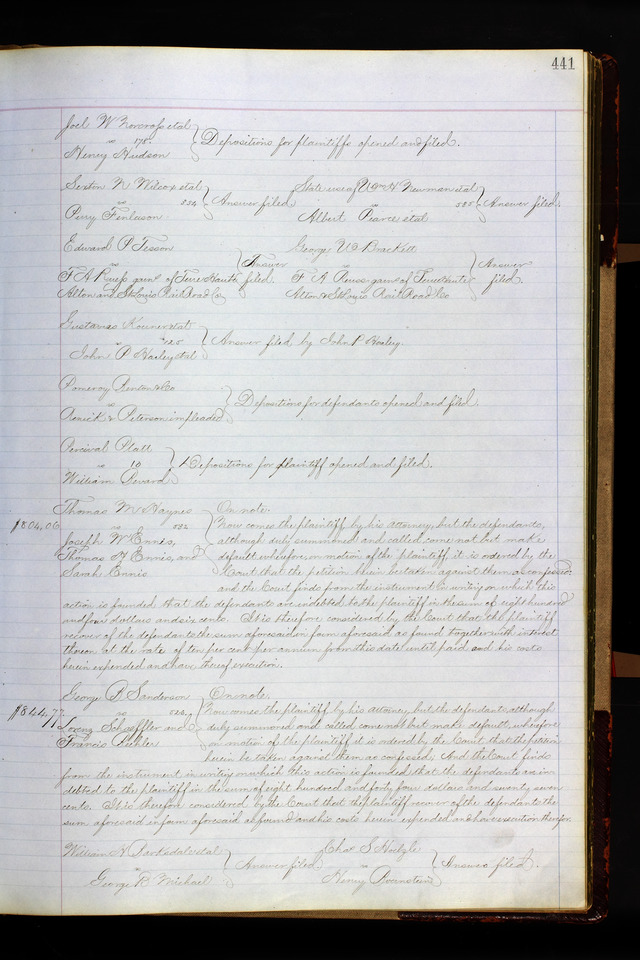 441
Joel W Norcross et al
vs 178.
Henry Hudson
Depositions for plaintiffs opened and filed.
Sexton N Wilcox et al
vs 254
Perry Finlason
Answer filed
State use of Wm H Newman et al
vs 585
Albert Pearce et al
Answer filed.
Edward P Tesson
vs
F A garn. of Terre Haute
Alton and St Louis Rail Road Co
Answer
filed.
George W Brackett
vs
F. A garn of Terre Haute
Alton & St Louis Rail Road Co
Answer
filed.
Gustavus et al
vs
John P Hanley et al
Answer filed by John P Hanley.
Pomeroy Benton & Co
vs
Renick & Peterson impleaded
Depositions for defendants opened and filed.
Percival Platt
vs 10
William
Depositions for plaintiff opened and filed.
Thomas M Haynes
$804.06 vs 582
Joseph W Ennis,
Thomas Y Ennis, and
Sarah Ennis
On note.
Now comes the plaintiff by his attorney, but the defendants,
although duly summoned and called come not but make
default, wherefore, on motion of the plaintiff it is ordered by the
Court that the petition herein be taken against them as confessed:
and the Court finds from the instrument in writing on which this
action is founded that the defendants are indebted to the plaintiff in the sum of eight hundred
and four dollars and six cents. It is therefore considered by the Court that the plaintiff
recover of the defendants the sum aforesaid in form aforesaid as found together with interest
thereon at the rate of ten per cent per annum from this date until paid and his costs
herein expended and have thereof execution.
George P Sanderson
$844.77 vs
Lorenz Schaeffler and
Francis
On note.
Now comes the plaintiff by his attorney, but the defendants although
duly summoned and called come not but make default, wherefore
on motion of the plaintiff it is ordered by the Court that the petition
herein be taken against them as confessed, And the Court finds
from the instrument in writing on which this action is founded that the defendants are in
debted to the plaintiff in the sum of eight hundred and forty four dollars and seventy seven
cents. It is therefore considered by the Court that the plaintiff recover of the defendants the
sum aforesaid in form aforesaid as found and his costs herein expended and have execution therefor.
William H Barksdale et al
vs
George B Michael
Answer filed
Chas S
vs
Henry
Answer filed.